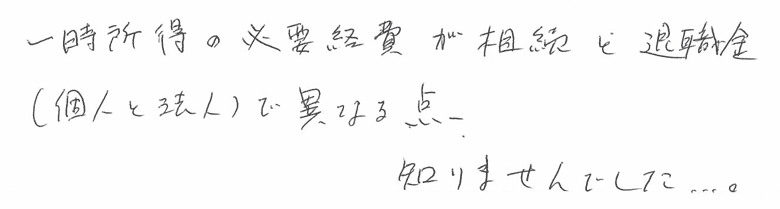 一時所得の必要経費が相続と退職金
(個人と法人)で異なる点、
知りませんでした…。